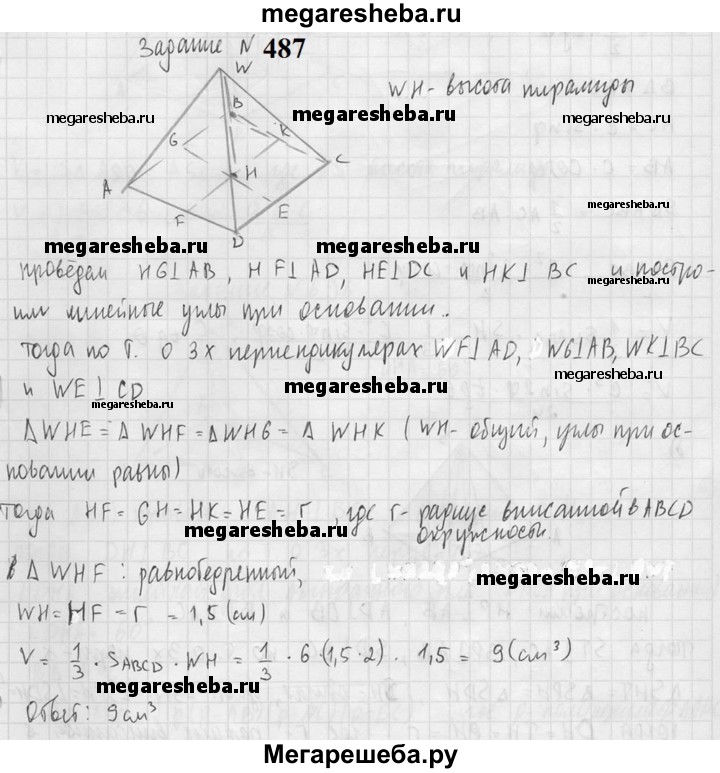 megaresheba.ru
Задание N 487
W
WH - высота пирамиды
megaresheba.ru
B
megaresheba.ru
G
K
C
A
H
megaresheba.ru
F
E
D
megaresheba.ru
megaresheba.ru
проведём HG⊥AB, HF⊥AD, HE⊥DC и HK⊥BC и постро-
им линейные углы при основании.
megaresheba.ru
Тогда по т. о 3х перпендикулярах WF⊥AD, WG⊥AB, WK⊥BC
и WE⊥CD
megaresheba.ru
megaresheba.ru
ΔWHE = ΔWHF = ΔWHG = ΔWHK (WH - общий, углы при ос-
новании равны)
Тогда HF = GH = HK = HE = r, где r - радиус вписанной в ABCD
окружности.
megaresheba.ru
в ΔWHF: равнобедренный,
megaresheba.ru
WH = HF = r = 1,5 (см)
V = 1/3 · S ABCD · WH = 1/3 · 6 · (1,5 · 2) · 1,5 = 9 (см³)
megaresheba.ru
Ответ: 9 см³
Мегарешеба.ру